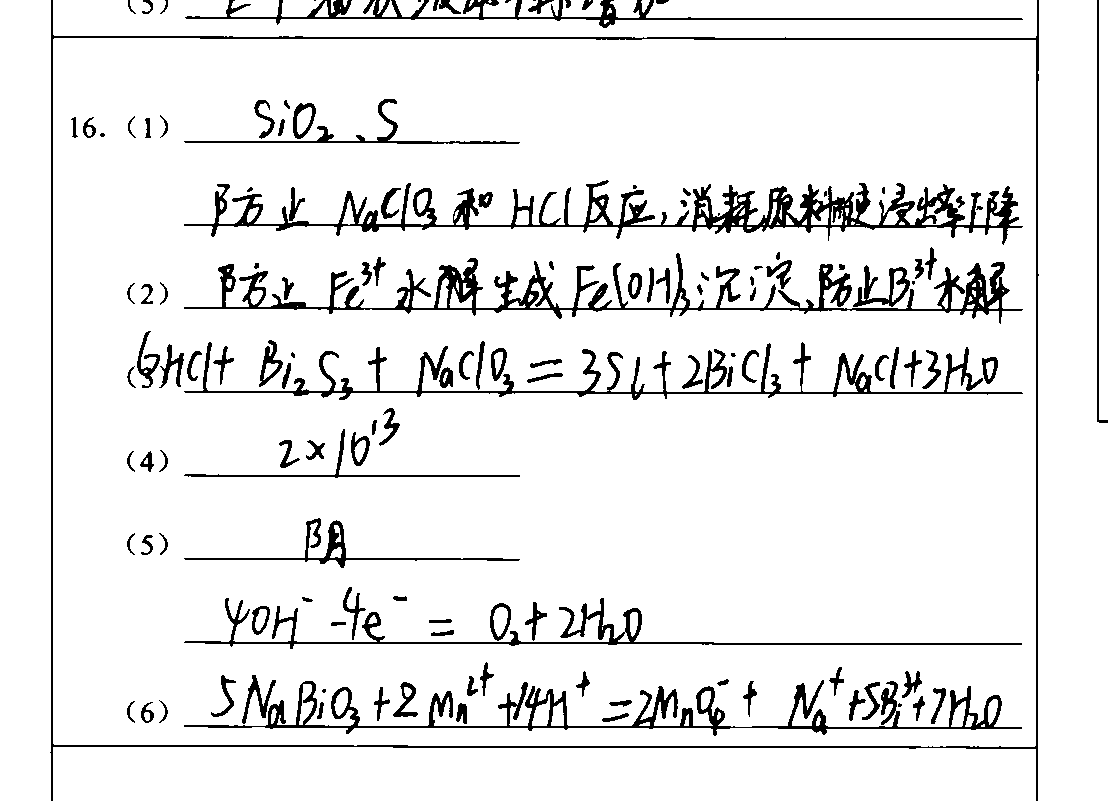 (5)
16. (1) SiO₂、S
防止 NaClO₃ 和 HCl 反应，消耗原料使浸出率下降
(2) 防止 Fe³⁺ 水解生成 Fe(OH)₃沉淀，防止Bi³⁺水解
6HCl + Bi₂S₃ + NaClO₃ = 3S↓ + 2BiCl₃ + NaCl + 3H₂O
(4) 2×10¹³
(5) 阴
4OH⁻ - 4e⁻ = O₂ + 2H₂O
(6) 5NaBiO₃ + 2Mn²⁺ + 14H⁺ = 2MnO₄⁻ + Na⁺ + 5Bi³⁺ + 7H₂O